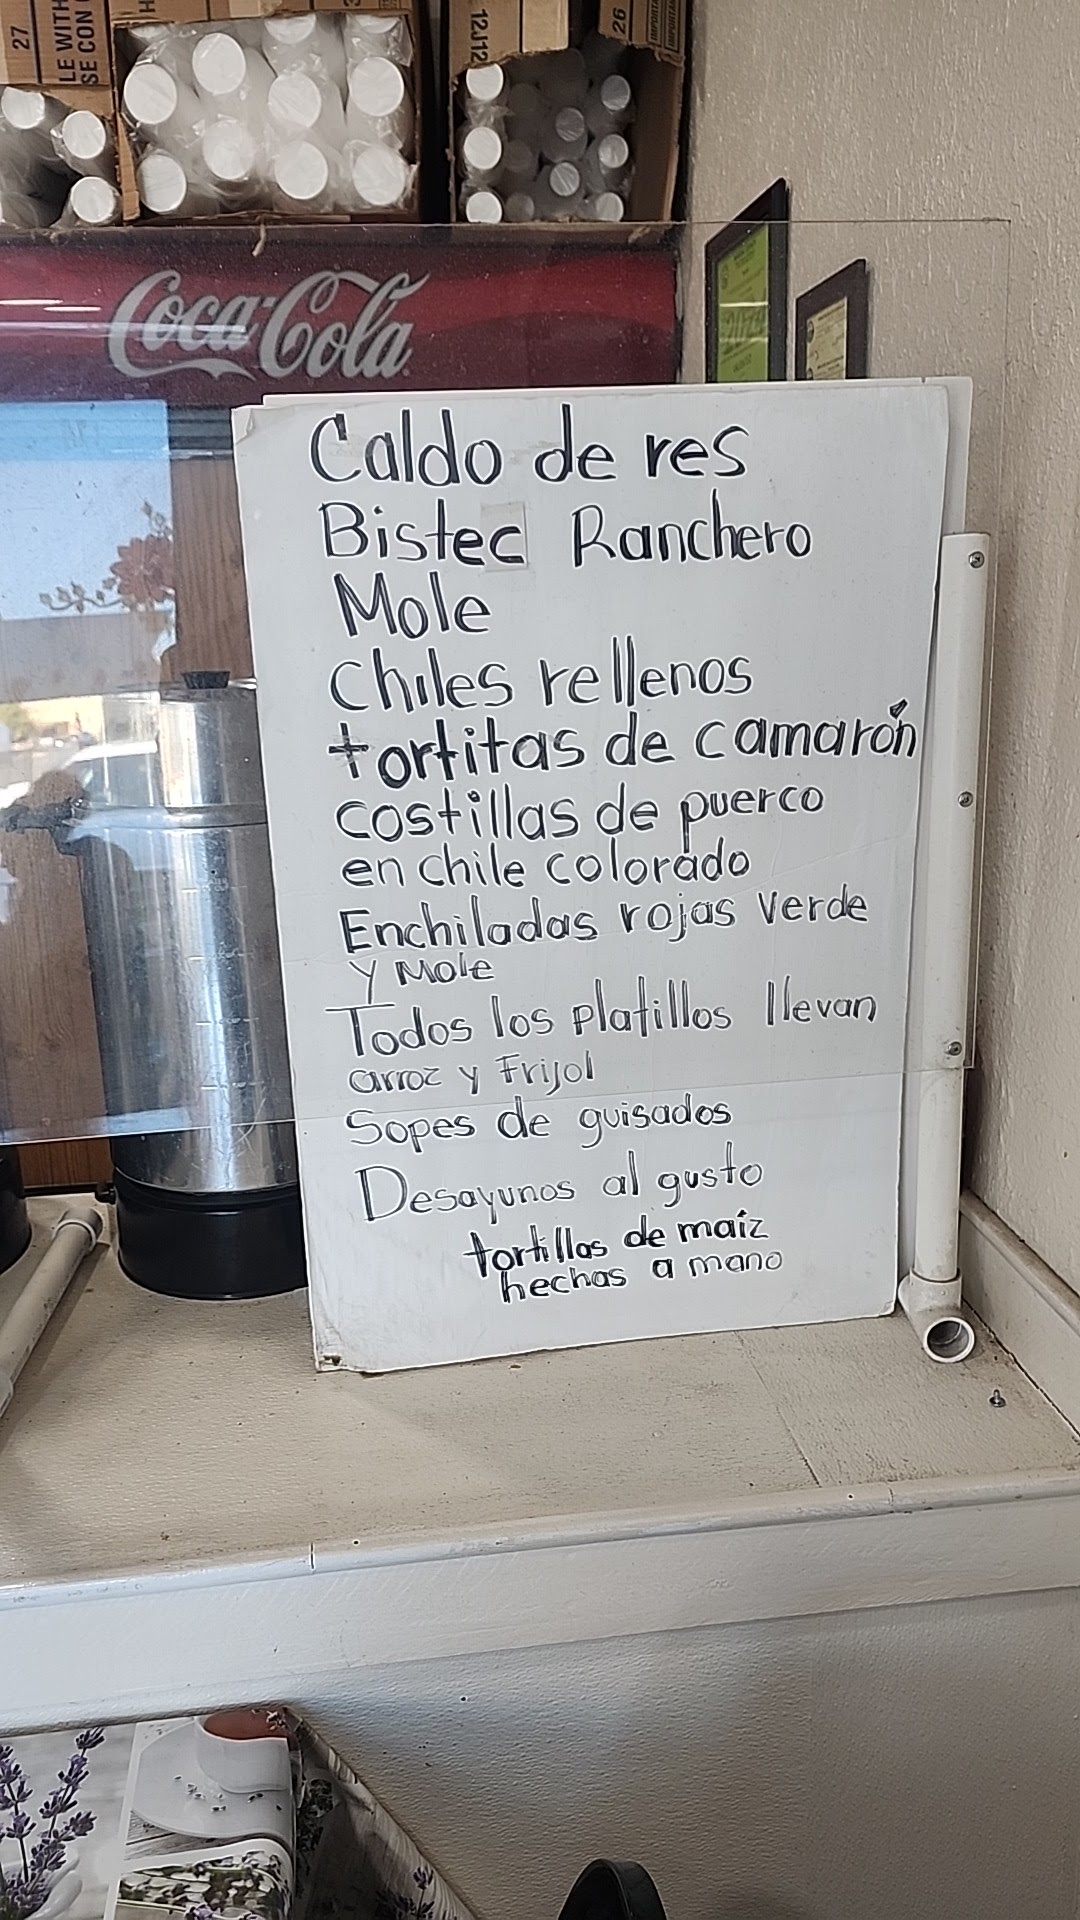 27
LE WITH
SE CON
12J12
26
Coca-Cola
Caldo de res
Bistec Ranchero
Mole
Chiles rellenos
tortitas de camarón
costillas de puerco
en chile colorado
Enchiladas rojas verde
y Mole
Todos los platillos llevan
arroz y Frijol
Sopes de guisados
Desayunos al gusto
tortillas de maíz
hechas a mano